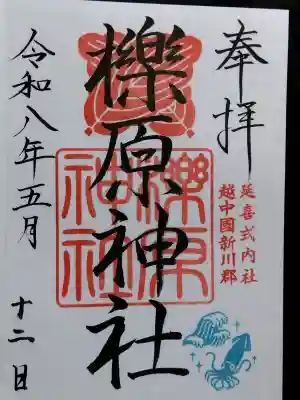 奉拝
延喜式内社
越中國新川郡
櫟原神社
櫟原神社
令和八年五月
十二日